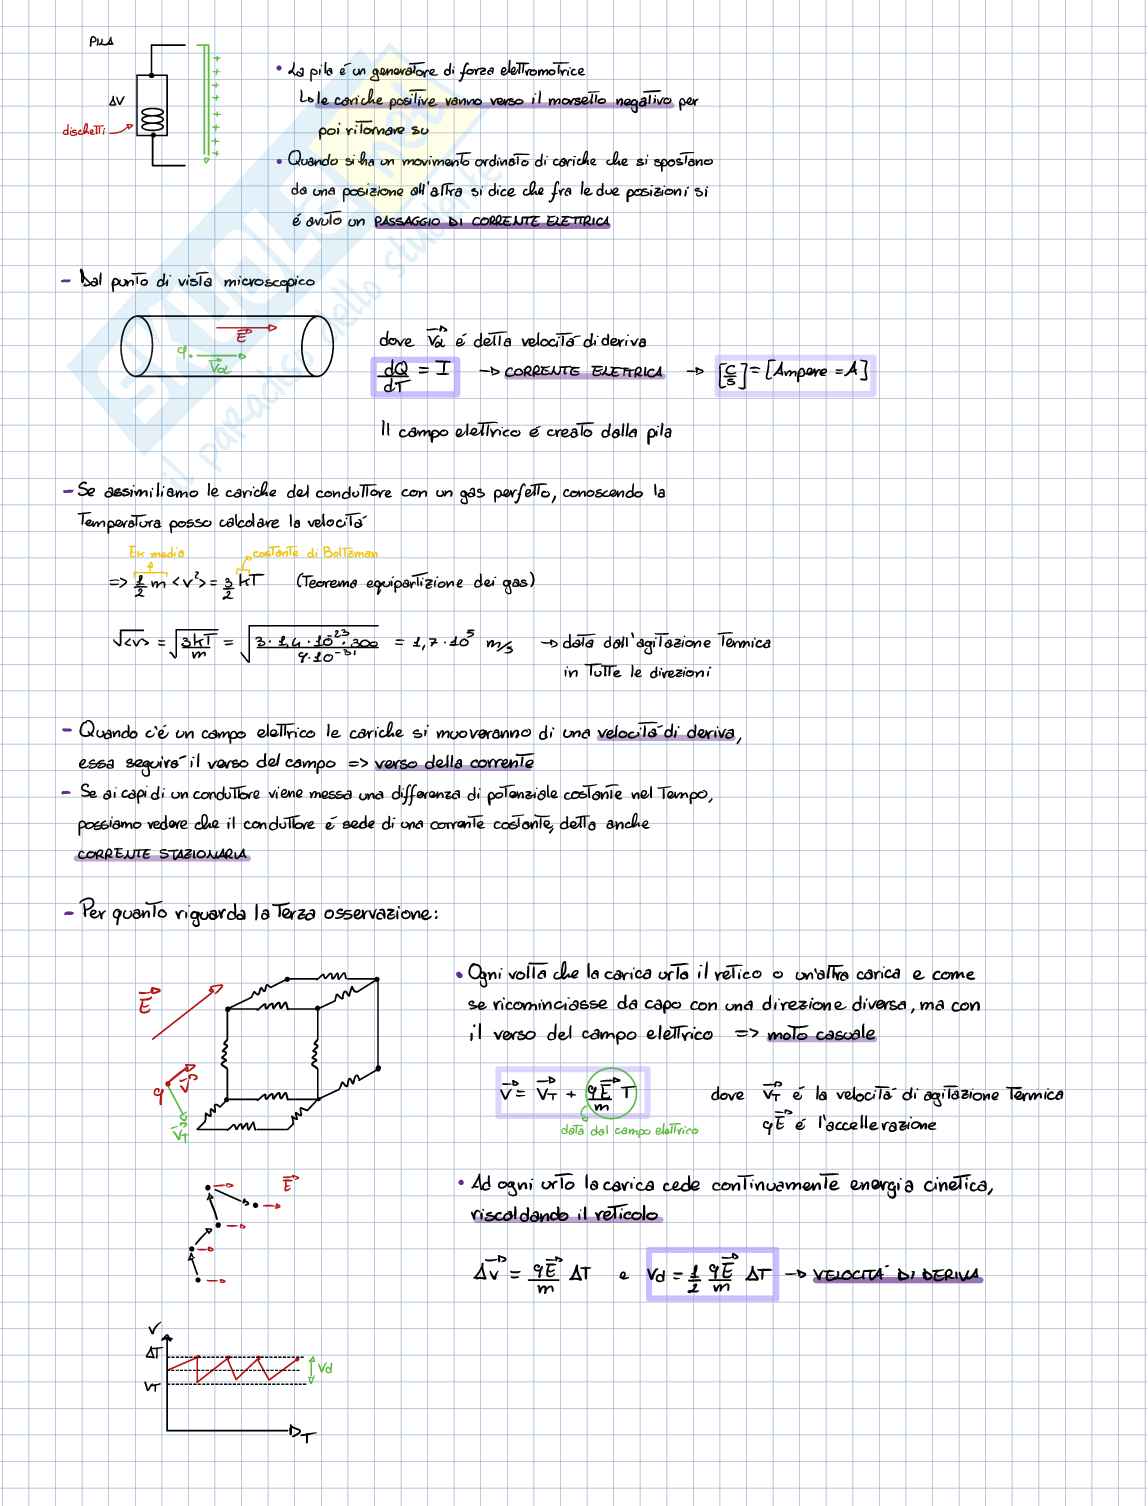 PILA
ΔV
dischetti
+ + + + + + + +
• La pila é un generatore di forza elettromotrice
↳ le cariche positive vanno verso il morsetto negativo per
poi ritornare su
• Quando si ha un movimento ordinato di cariche che si spostano
da una posizione all'altra si dice che fra le due posizioni si
é avuto un PASSAGGIO DI CORRENTE ELETTRICA
- Dal punto di vista microscopico
E
q
Vd
dove Vd é detta velocitá di deriva
dQ/dT = I → CORRENTE ELETTRICA → [C/s] = [Ampere = A]
Il campo elettrico é creato dalla pila
- Se assimiliamo le cariche del conduttore con un gas perfetto, conoscendo la
Temperatura posso calcolare la velocitá
Ek media
costante di Boltzman
=> 1/2 m <v²> = 3/2 kT (Teorema equipartizione dei gas)
√<v> = √3kT/m = √3·1,4·10⁻²³·300/9·10⁻³¹ = 1,7·10⁵ m/s → data dall'agitazione Termica
in Tutte le direzioni
- Quando c'é un campo elettrico le cariche si muoveranno di una velocitá di deriva,
essa seguirá il verso del campo => verso della corrente
- Se ai capi di un conduttore viene messa una differenza di potenziale costante nel Tempo,
possiamo vedere che il conduttore é sede di una corrente costante, detta anche
CORRENTE STAZIONARIA
- Per quanto riguarda la Terza osservazione:
E
q
V
VT
• Ogni volta che la carica urta il retico o un'altra carica e come
se ricominciasse da capo con una direzione diversa, ma con
il verso del campo elettrico => moto casuale
V = VT + qE/m T
data dal campo elettrico
dove VT é la velocitá di agitazione Termica
qE é l'accellerazione
E
• Ad ogni urto la carica cede continuamente energia cinetica,
riscaldando il reticolo
ΔV = qE/m ΔT e Vd = 1/2 qE/m ΔT → VELOCITÁ DI DERIVA
V
ΔT
VT
Vd
T
SKUOLA.net
il paradiso dello studente